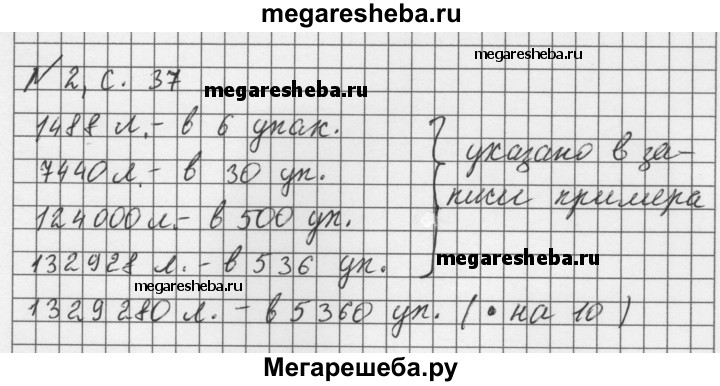 megaresheba.ru
megaresheba.ru
N 2, с. 37
megaresheba.ru
1488 л. - в 6 упак.
7440 л. - в 30 уп.
124000 л. - в 500 уп.
132928 л. - в 536 уп.
указано в за-
писи примера
megaresheba.ru
megaresheba.ru
1329280 л. - в 5360 уп. (• на 10)
Мегарешеба.ру